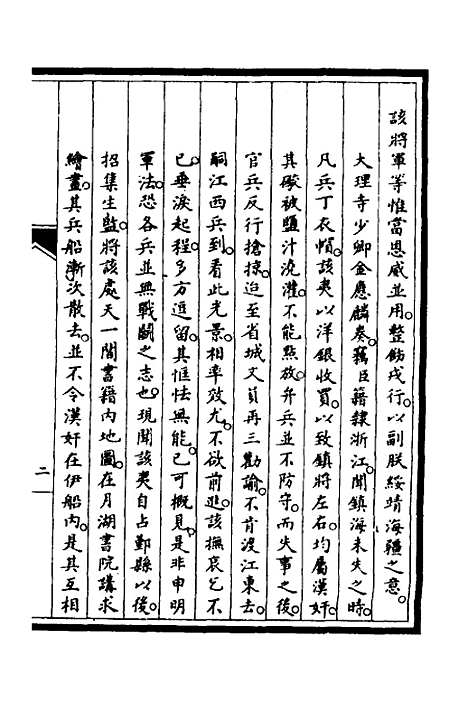 該將軍等惟當恩威並用。整飭戎行。以副朕綏靖海疆之意。
大理寺少卿金應麟奏。竊臣籍隸浙江。聞鎮海未失之時。
凡兵丁衣帽。該夷以洋銀收買。以致鎮將左右。均屬漢奸。
其礮被鹽汁澆灌。不能點放。弁兵並不防守。而失事之後。
官兵反行搶掠。迨至省城文員再三勸諭。不肯渡江東去。
嗣江西兵到。看此光景。相率效尤。不欲前進。該撫哀乞不
已。垂淚起程。多方逗留。其恇怯無能。已可概見。是非申明
軍法。恐各兵並無戰鬭之志也。現聞該夷自占鄞縣以後。
招集生監。將該處天一閣書籍內地圖。在月湖書院講求
繪畫。其兵船漸次散去。並不令漢奸在伊船內。是其互相
二